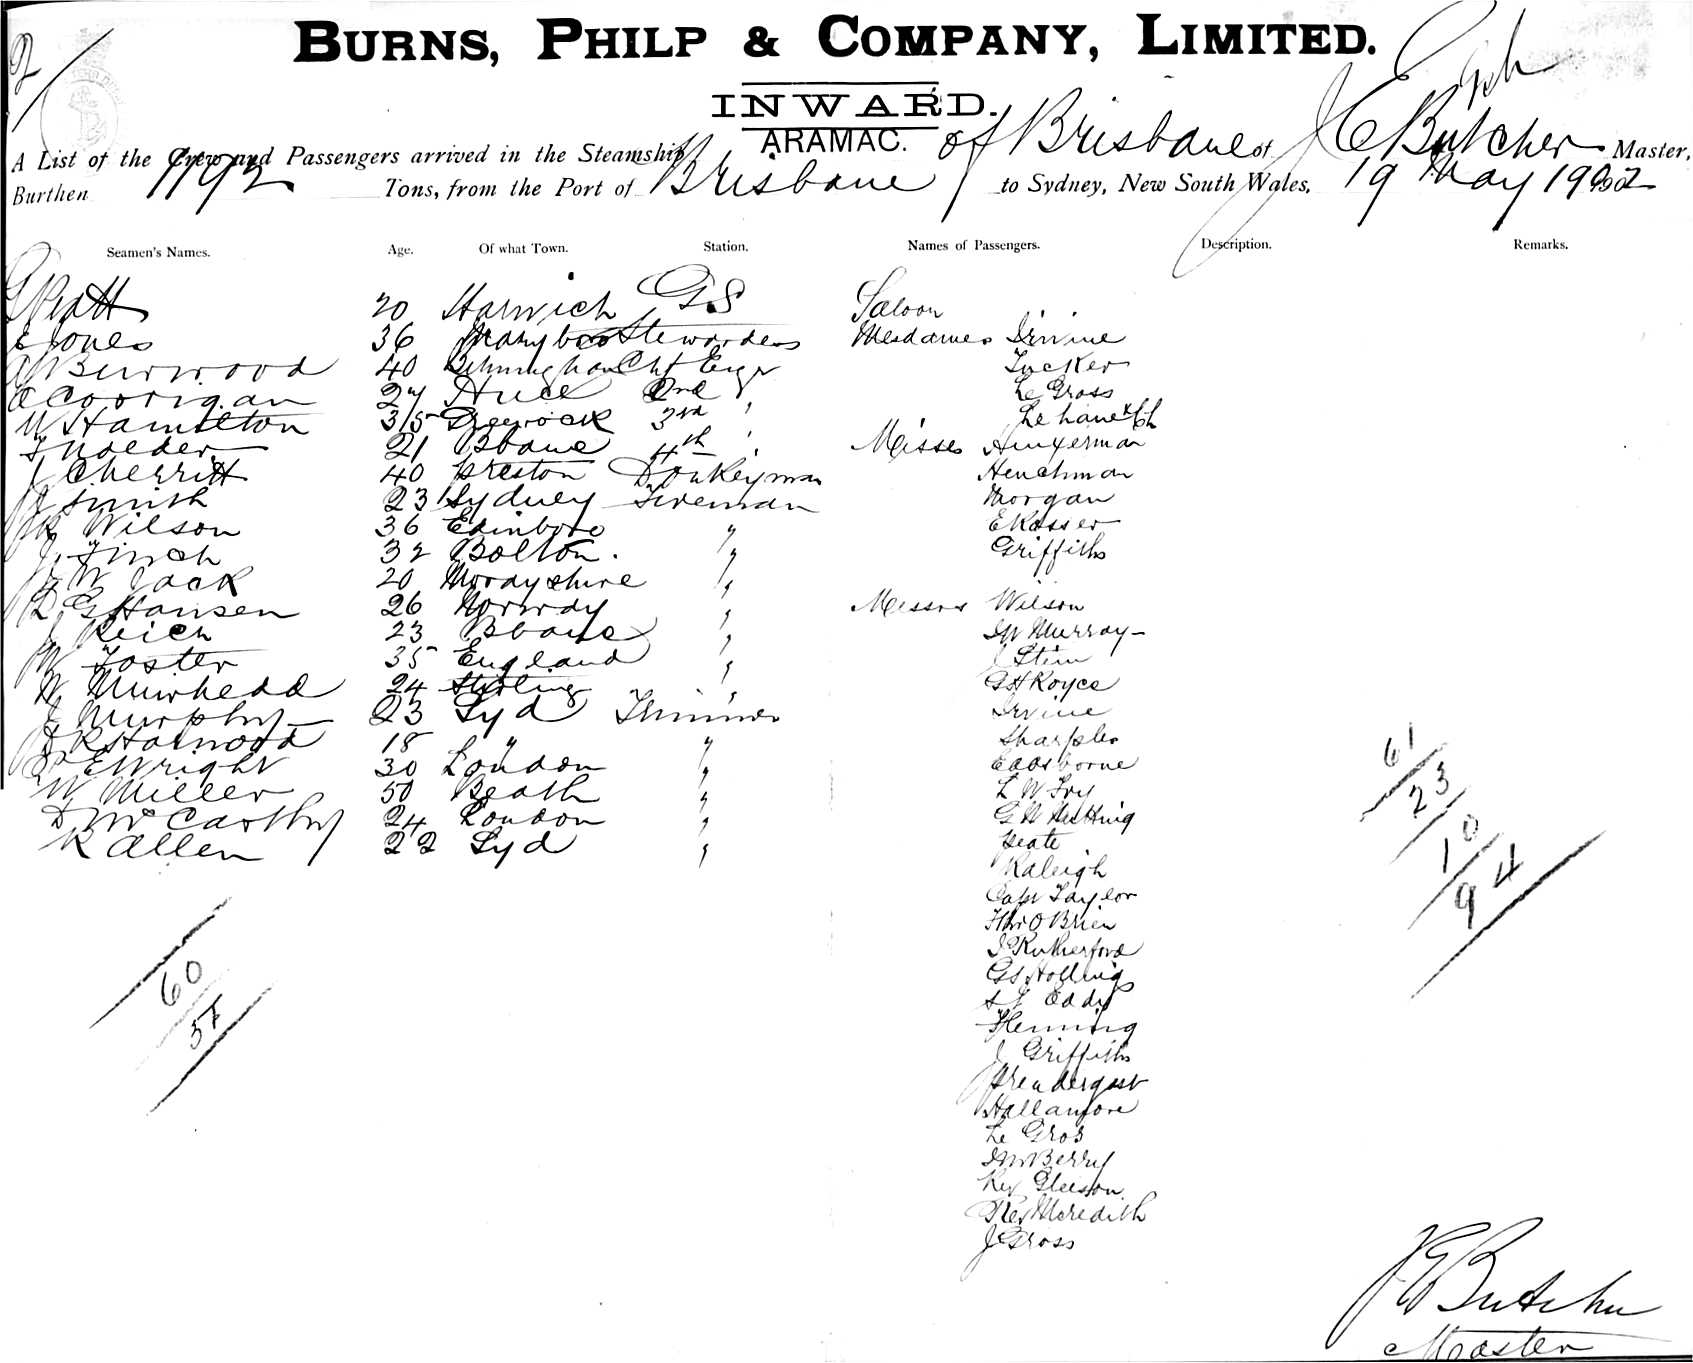 2
BURNS, PHILP & COMPANY, LIMITED.
INWARD.
ARAMAC.
A List of the Crew and Passengers arrived in the Steamship of Brisbane of J E Butcher Master,
Burthen Tons, from the Port of Brisbane to Sydney, New South Wales, 19 May 1902
Seamen's Names. Age. Of what Town. Station. Names of Passengers. Description. Remarks.
G Pratt 20 Harwich G.S
E Jones 36 Stewardess
Burwood 40 Birmingham Chf Engr
Coorigan 27 Hull 2nd "
W Hamilton 35 Greenock 3rd "
Nolder 21 Bbane 4th "
J Cherritt 40 Preston Donkeyman
J Smith 23 Sydney Fireman
Wilson 36 Edinboro "
J. Finch 32 Bolton. "
W Jack 20 Morayshire "
Hansen 26 Norway "
J Reich 23 Bbane "
W Foster 35 England "
W Muirhead 24 Stirling "
J Murphy 23 Syd Trimmer
J R Harwood 18 " "
E Wright 30 London "
W Miller 50 Beath "
D McCarthy 24 London "
R Allen 22 Syd "
60
Saloon
Mesdames Irvine
Tucker
Le Gross
Misses
Henchman
Morgan
Griffiths
Messrs Wilson
Murray
J Stein
G H Royce
Irvine
Sharples
L W Fry
G W Nutting
Peate
Raleigh
Capt Taylor
O'Brien
J Rutherford
Eddy
Fleming
J Griffiths
Prendergast
Le Gros
Berry
Rev Gleeson
Rev Meredith
J Gross
61
23
10
94
J E Butcher
Master